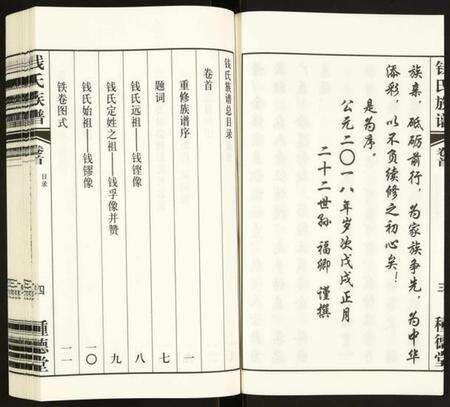 钱氏族谱
卷首
三
种德堂
族亲，砥砺前行，为家族争先，为中华
添彩，以不负续修之初心矣！
是为序。
公元二〇一八年岁次戊戌正月
二十二世孙 福卿 谨撰
钱氏族谱总目录
卷首
重修族谱序 一
题词 七
钱氏远祖——钱铿像 八
钱氏定姓之祖——钱孚像并赞 九
钱氏始祖——钱镠像 一〇
铁卷图式 一一
钱氏族谱
卷首
目录
四
种德堂